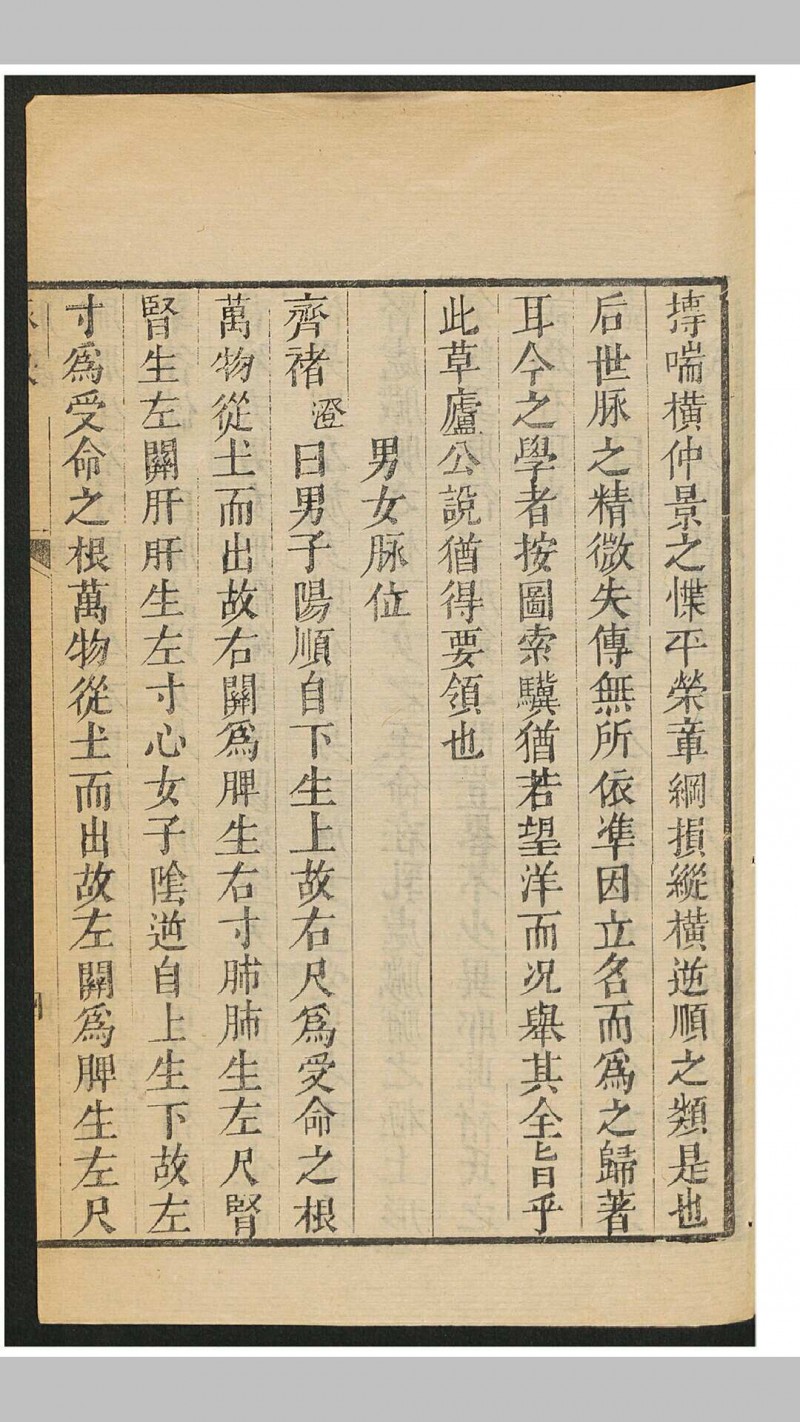 摶喘橫仲景之惵平榮章綱損縱橫逆順之類是也
后世脉之精微失傳無所依凖因立名而爲之歸著
耳今之學者按圖索驥猶若望洋而况舉其全旨乎
此草廬公說猶得要領也
男女脉位
齊褚澄曰男子陽順自下生上故右尺爲受命之根
萬物從土而出故右關爲脾生右寸肺肺生左尺腎
腎生左關肝肝生左寸心女子陰逆自上生下故左
寸爲受命之根萬物從土而出故左關爲脾生左尺